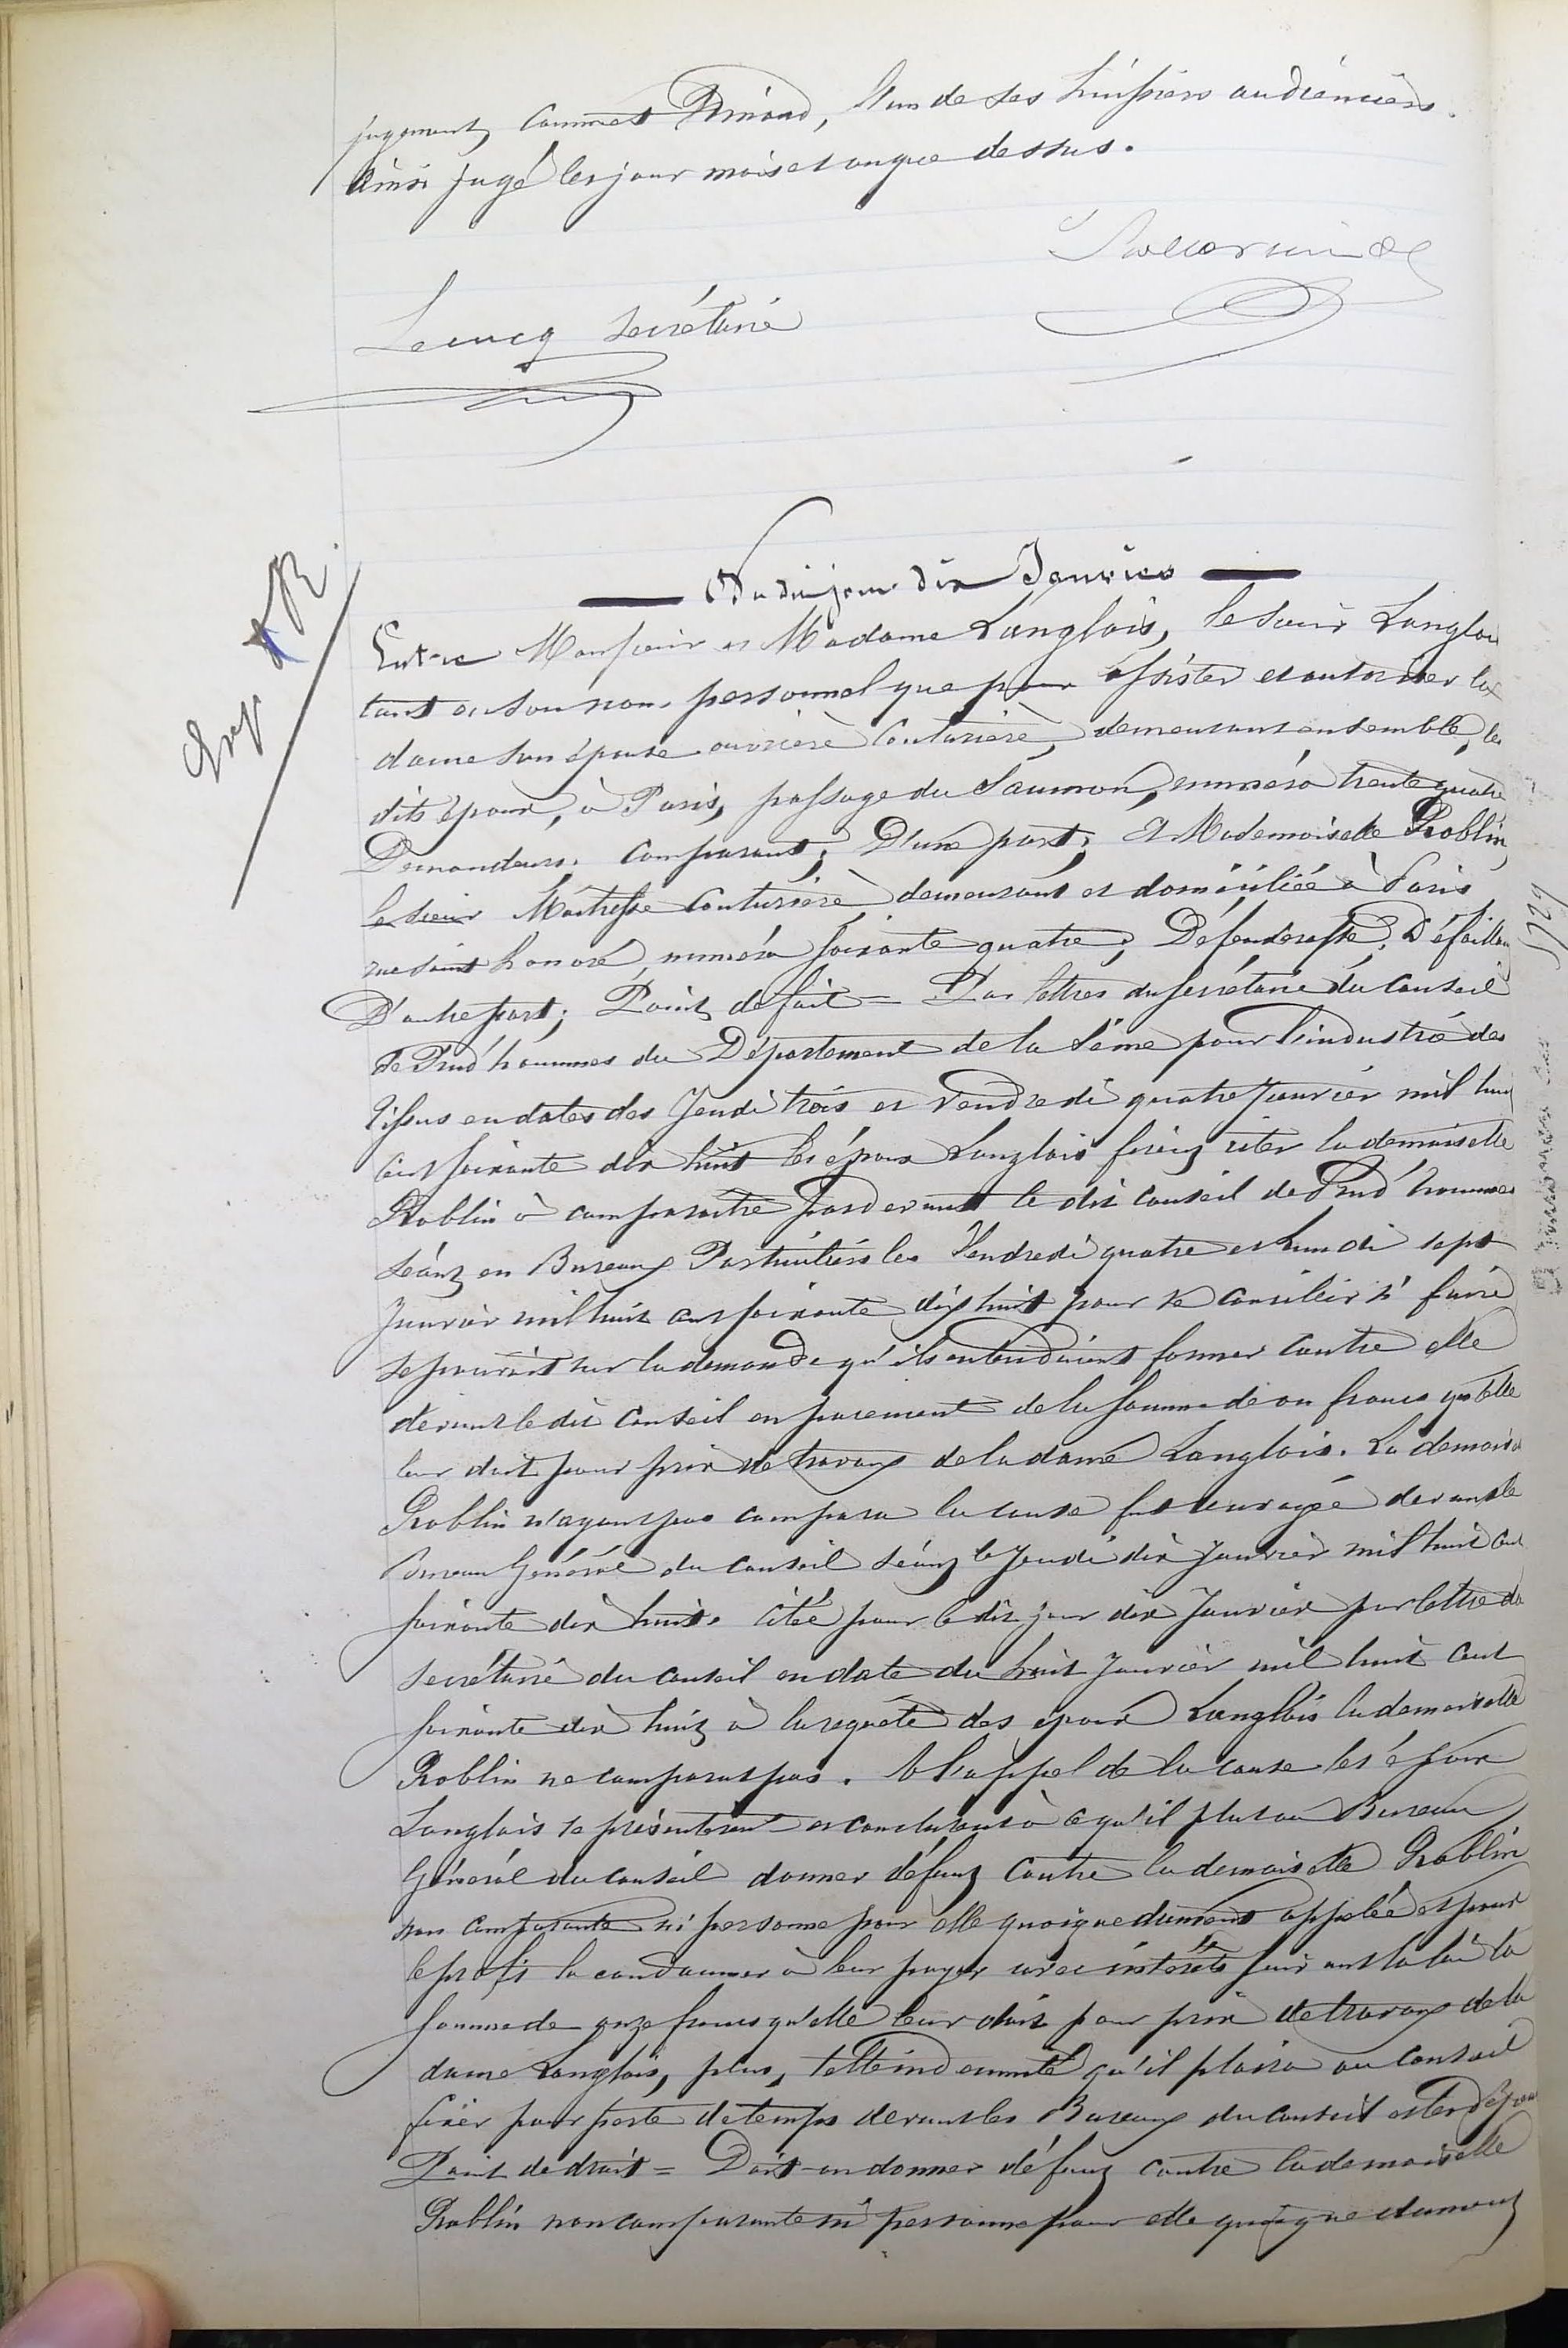 jugement, commet Pinard, l'un de ses huissiers audienciers.
Ainsi jugé les jour mois et an que dessus.
Lecucq secrétaire
Du dit jour dix Janvier
Entre Monsieur et Madame Langlois, le sieur Langlois
tant en son nom personnel que pour assister et autoriser la
dame son épouse ouvrière Couturière, demeurant ensemble, les
dits époux, à Paris, passage du Saumon, numéro trente quatre
Demandeurs; Comparant; D'une part; Et Mademoiselle Roblin,
le sieur Maîtresse Couturière, demeurant et domiciliée à Paris
rue Saint honoré, numéro soixante quatre; Défenderesse; Défaillant
D'autre part; Point de fait = Par lettres du secrétaire du Conseil
de Prud'hommes du Département de la Seine pour l'industrie des
tissus en dates des Jeudi trois et Vendredi quatre Janvier mil huit
cent soixante dix huit les époux Langlois firent citer la demoiselle
Roblin à comparaître par devant le dit conseil de Prud'hommes
séant en Bureaux Particuliers les Vendredi quatre et Lundi sept
Janvier mil huit cent soixante dix huit pour se concilier si faire
se pouvait sur la demande qu'ils entendaient former contre elle
devant le dit Conseil en paiement de la somme de on francs qu'elle
leur doit pour prix de travaux de la dame Langlois. La demoiselle
Roblin n'ayant pas comparu la cause fut renvoyée devant le
Bureau Général du Conseil séant le Jeudi dix Janvier mil huit cent
soixante dix huit. Citée pour le dit jour dix Janvier par lettre du
secrétaire du conseil en date du huit Janvier mil huit cent
soixante dix huit à la requête des époux Langlois la demoiselle
Roblin ne comparut pas. A l'appel de la cause les époux
Langlois se présentèrent et conclurent à ce qu'il plut au Bureau
Général du conseil donner défaut contre la demoiselle Roblin
non comparante ni personne pour elle quoique dument appelée et pour
le profit la condamner à leur payer avec intérêts suivant la loi la
somme de onze francs qu'elle leur doit pour prix de travaux de la
dame Langlois, plus, telle indemnité qu'il plaira au Conseil
fixer pour perte de temps devant les Bureaux du conseil et les dépens
Point de droit = Doit-on donner défaut contre la demoiselle
Roblin non comparante ni personne pour elle quoique dument